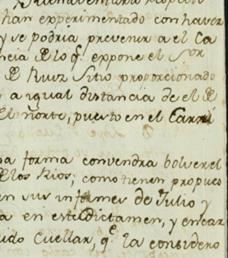 han experimentado con haver
y se podria prevenir a el Ca
ncia D lo q.e expone el S.or
D Ruiz Sitio proporcionado
y a igual distancia de el P
El norte, puerto en el Carri
pa forma convendra bolver el
D los Rios; como tienen propues
en sus informes de Julio y
a en este Dictamen, y encar
ido Cuellar, q.e la considero